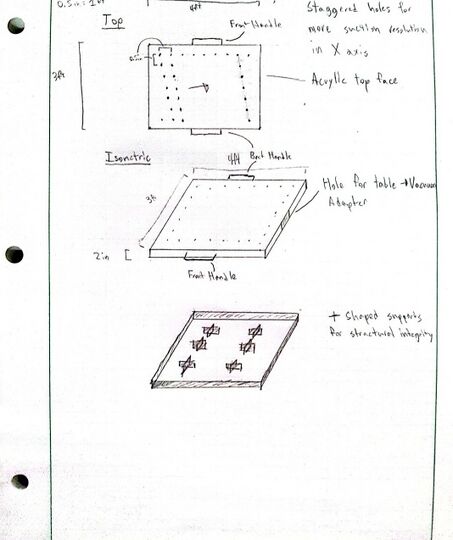 0.5in : 1ft
4ft
Staggered holes for
more suction resolution
in X axis
Top
Front Handle
3ft
0.5in
Acrylic top face
Isometric
4ft
Back Handle
3ft
Hole for table → Vacuum
Adapter
2in
Front Handle
+ Shaped supports
for structural integrity